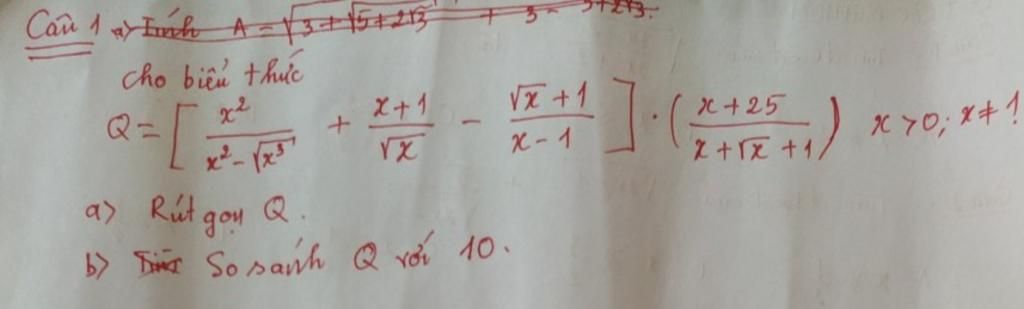 Câu 1 a) Tính A = √(3 + √(5 + 2√3)) + 3 - 5+2√3.
cho biểu thức
Q = [ x²/(x² - √x³) + (x+1)/√x - (√x + 1)/(x - 1) ] . ( (x + 25)/(x + √x + 1) ) x > 0; x ≠ 1
a) Rút gọn Q.
b) So sánh Q với 10.